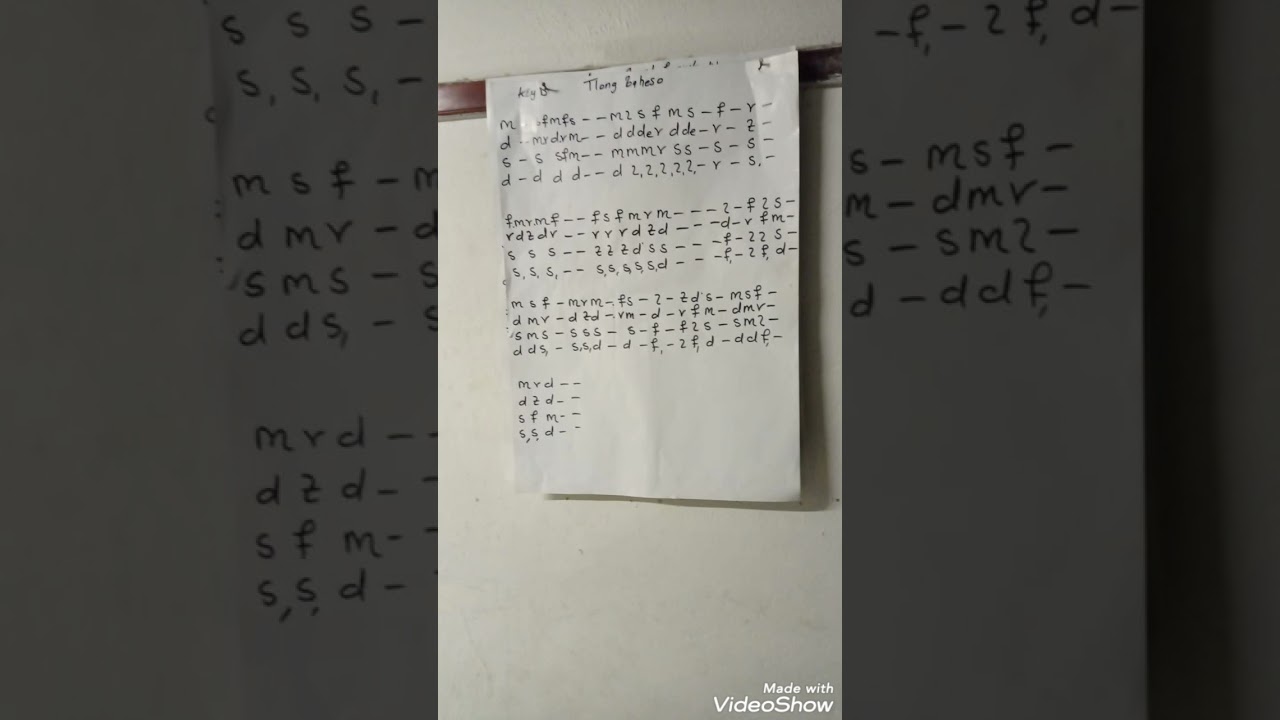 key Tlong Baheso
m sfmfs - - m2sf ms - f - r -
d - mrdrm - - ddder dde - r - z -
s - s sfm - - mmmr ss - s - s -
d - d d d - - d 2,2,2,2,2, - r - s, -
fmr.mf - - fsfmrm - - - 2 - f2s -
rdzdr - - rrrdzd - - - d - r fm -
s s s - - zzzd'ss - - - f - 22s -
s, s, s, - - s,s,s,s,s,d - - - f, - 2f, d -
msf - mrm - fs - 2 - zd's - msf -
dmr - dzd - rm - d - rfm - dmr -
sms - sss - s - f - f2s - sm2 -
dds, - s,s,d - d - f, - 2f, d - ddf, -
mrd - -
dzd - -
sfm - -
s,s,d - -
Made with
VideoShow